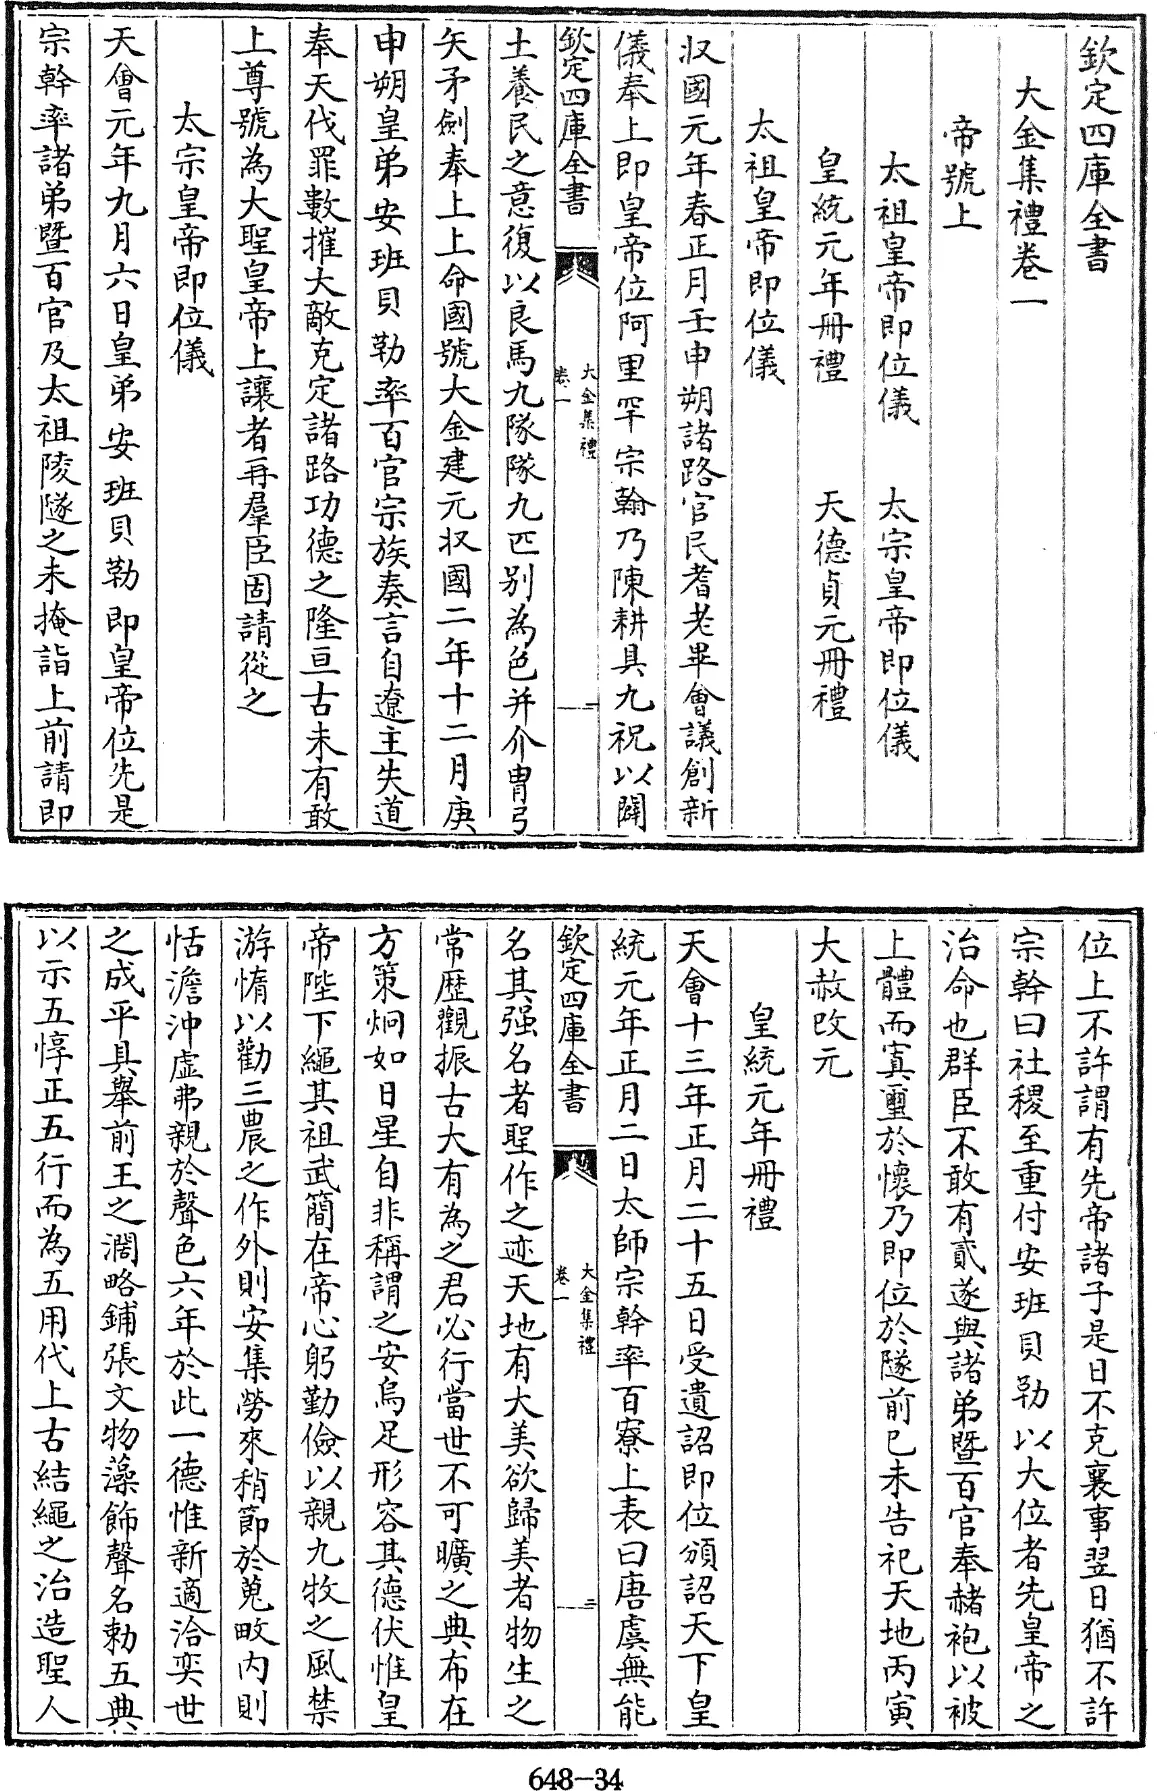 欽定四庫全書
大金集禮卷一
帝號上
太祖皇帝即位儀 太宗皇帝即位儀
皇統元年冊禮 天德貞元冊禮
太祖皇帝即位儀
収國元年春正月壬申朔諸路官民耆老畢會議創新
儀奉上即皇帝位阿里罕宗翰乃陳耕具九祝以闢
欽定四庫全書
大金集禮
卷一
二
土養民之意復以良馬九隊隊九匹别為色并介冑弓
矢矛劍奉上上命國號大金建元収國二年十二月庚
申朔皇弟安班貝勒率百官宗族奏言自遼主失道
奉天伐罪數摧大敵克定諸路功德之隆亘古未有敢
上尊號為大聖皇帝上讓者再羣臣固請從之
太宗皇帝即位儀
天會元年九月六日皇弟安班貝勒即皇帝位先是
宗幹率諸弟暨百官及太祖陵隧之未掩詣上前請即
位上不許謂有先帝諸子是日不克襄事翌日猶不許
宗幹曰社稷至重付安班貝勒以大位者先皇帝之
治命也群臣不敢有貳遂與諸弟暨百官奉赭袍以被
上體而寘璽於懷乃即位於隧前己未告祀天地丙寅
大赦改元
皇統元年冊禮
天會十三年正月二十五日受遺詔即位頒詔天下皇
統元年正月二日太師宗幹率百寮上表曰唐虞無能
欽定四庫全書
大金集禮
卷一
三
名其强名者聖作之迹天地有大美欲歸美者物生之
常歴觀振古大有為之君必行當世不可曠之典布在
方策炯如日星自非稱謂之安烏足形容其德伏惟皇
帝陛下繩其祖武簡在帝心躬勤儉以親九牧之風禁
游惰以勸三農之作外則安集勞來稍節於蒐畋内則
恬澹沖虛弗親於聲色六年於此一德惟新適洽奕世
之成平具舉前王之濶略鋪張文物藻飾聲名勅五典
以示五惇正五行而為五用代上古結繩之治造聖人
648-34